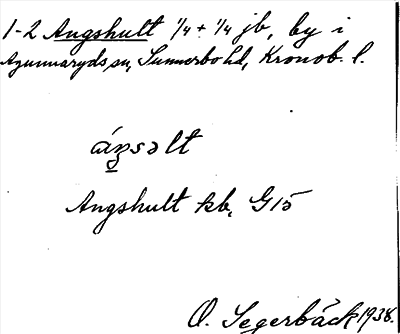 1-2 Angshult 1/4 + 1/4 jb, by i
Agunnaryds sn, Sunnerbo hd, Kronob. l.
áŋsəlt
Angshult kb, G15
O. Segerbäck 1938.